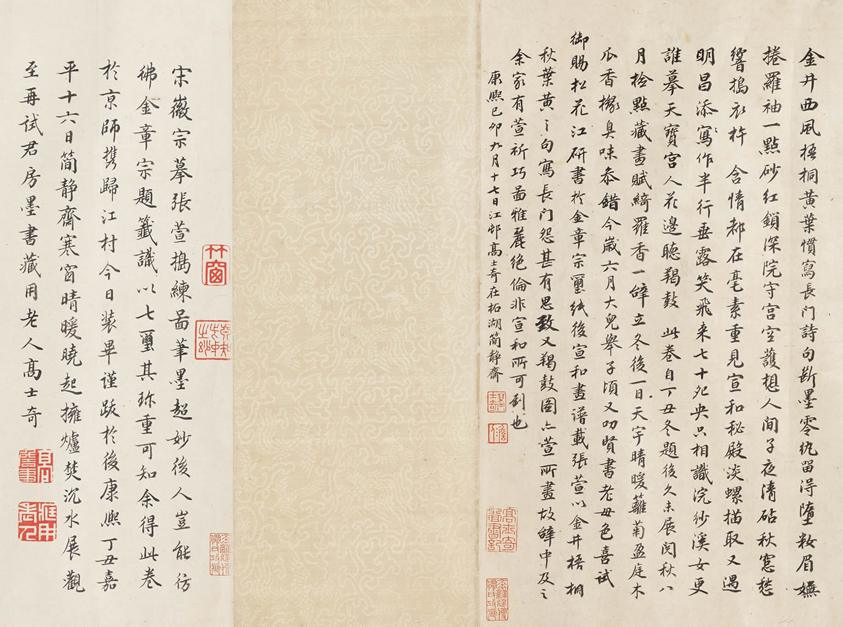 金井西風梧桐黃葉慣寫長門詩句斷墨零紈留得墮粧眉嫵
捲羅袖一點砂紅鎖深院守宮空護想人間子夜清砧秋窓愁
響搗衣杵 含情都在毫素重見宣和秘殿淡螺描取又遇
明昌添寫作半行垂露笑飛来七十夗央只相識浣紗溪女更
誰摹天寶宮人花邊聽羯鼓 此卷自丁丑冬題後久未展閱秋八
月檢點藏畫賦綺羅香一闋立冬後一日天宇晴暖籬菊盈庭木
瓜香橼臭味叅錯今歲六月大兒舉子頃又叨賢書老母色喜試
御賜松花江研書於金章宗璽紙後宣和畫譜載張萱以金井梧桐
秋葉黃之句寫長門怨甚有思致又羯鼓圖亦萱所畫故闋中及之
余家有萱祈巧啚雅麗絕倫非宣和所可到也
康熙己卯九月十七日江邨高士奇在柘湖簡静齋
高士奇圖書記
竹窗
宋徽宗摹張萱搗練啚筆墨超妙後人豈能彷
彿金章宗題籤識以七璽其珎重可知余得此卷
於京師携歸江村今日装畢謹跋於後康熙丁丑嘉
平十六日簡静齋寒窗晴暖曉起擁爐焚沉水展觀
至再試君房墨書藏用老人高士奇